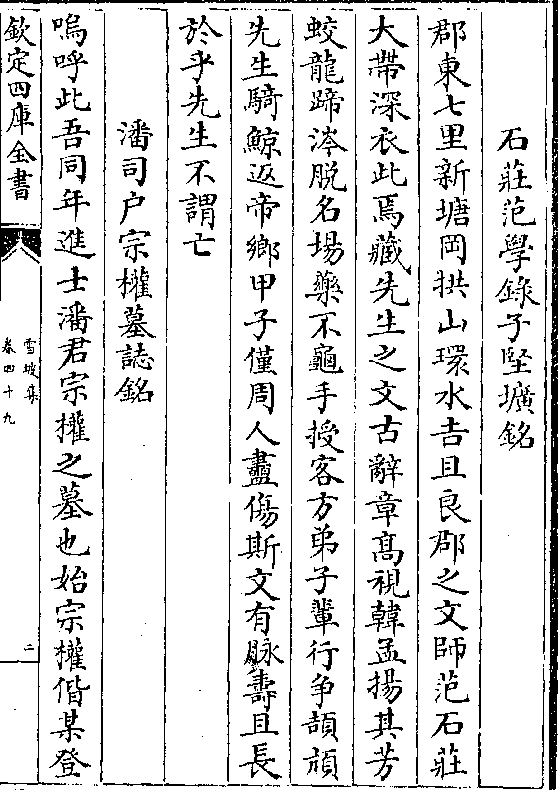 石莊范學錄子堅壙銘
郡東七里新塘岡拱山環水吉且良郡之文師范石莊
大帶深衣此焉藏先生之文古辭章高視韓孟揚其芳
蛟龍蹄涔脱名場藥不龜手授客方弟子輩行争頡頏
先生騎鯨返帝鄉甲子僅周人盡傷斯文有脉壽且長
於乎先生不謂亡
潘司户宗權墓誌銘
嗚呼此吾同年進士潘君宗權之墓也始宗權偕某登
欽定四庫全書
雪坡集
卷四十九
二